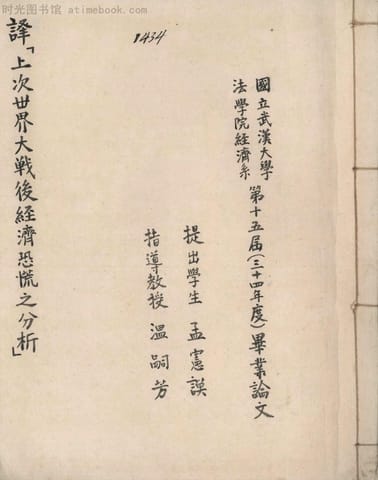 时光图书馆 atimebook.com
1434
國立武漢大學
法學院經濟系
第十五屆(三十四年度)畢業論文
提出學生 孟憲謨
指導教授 溫嗣芳
譯「上次世界大戰後經濟恐慌之分析」